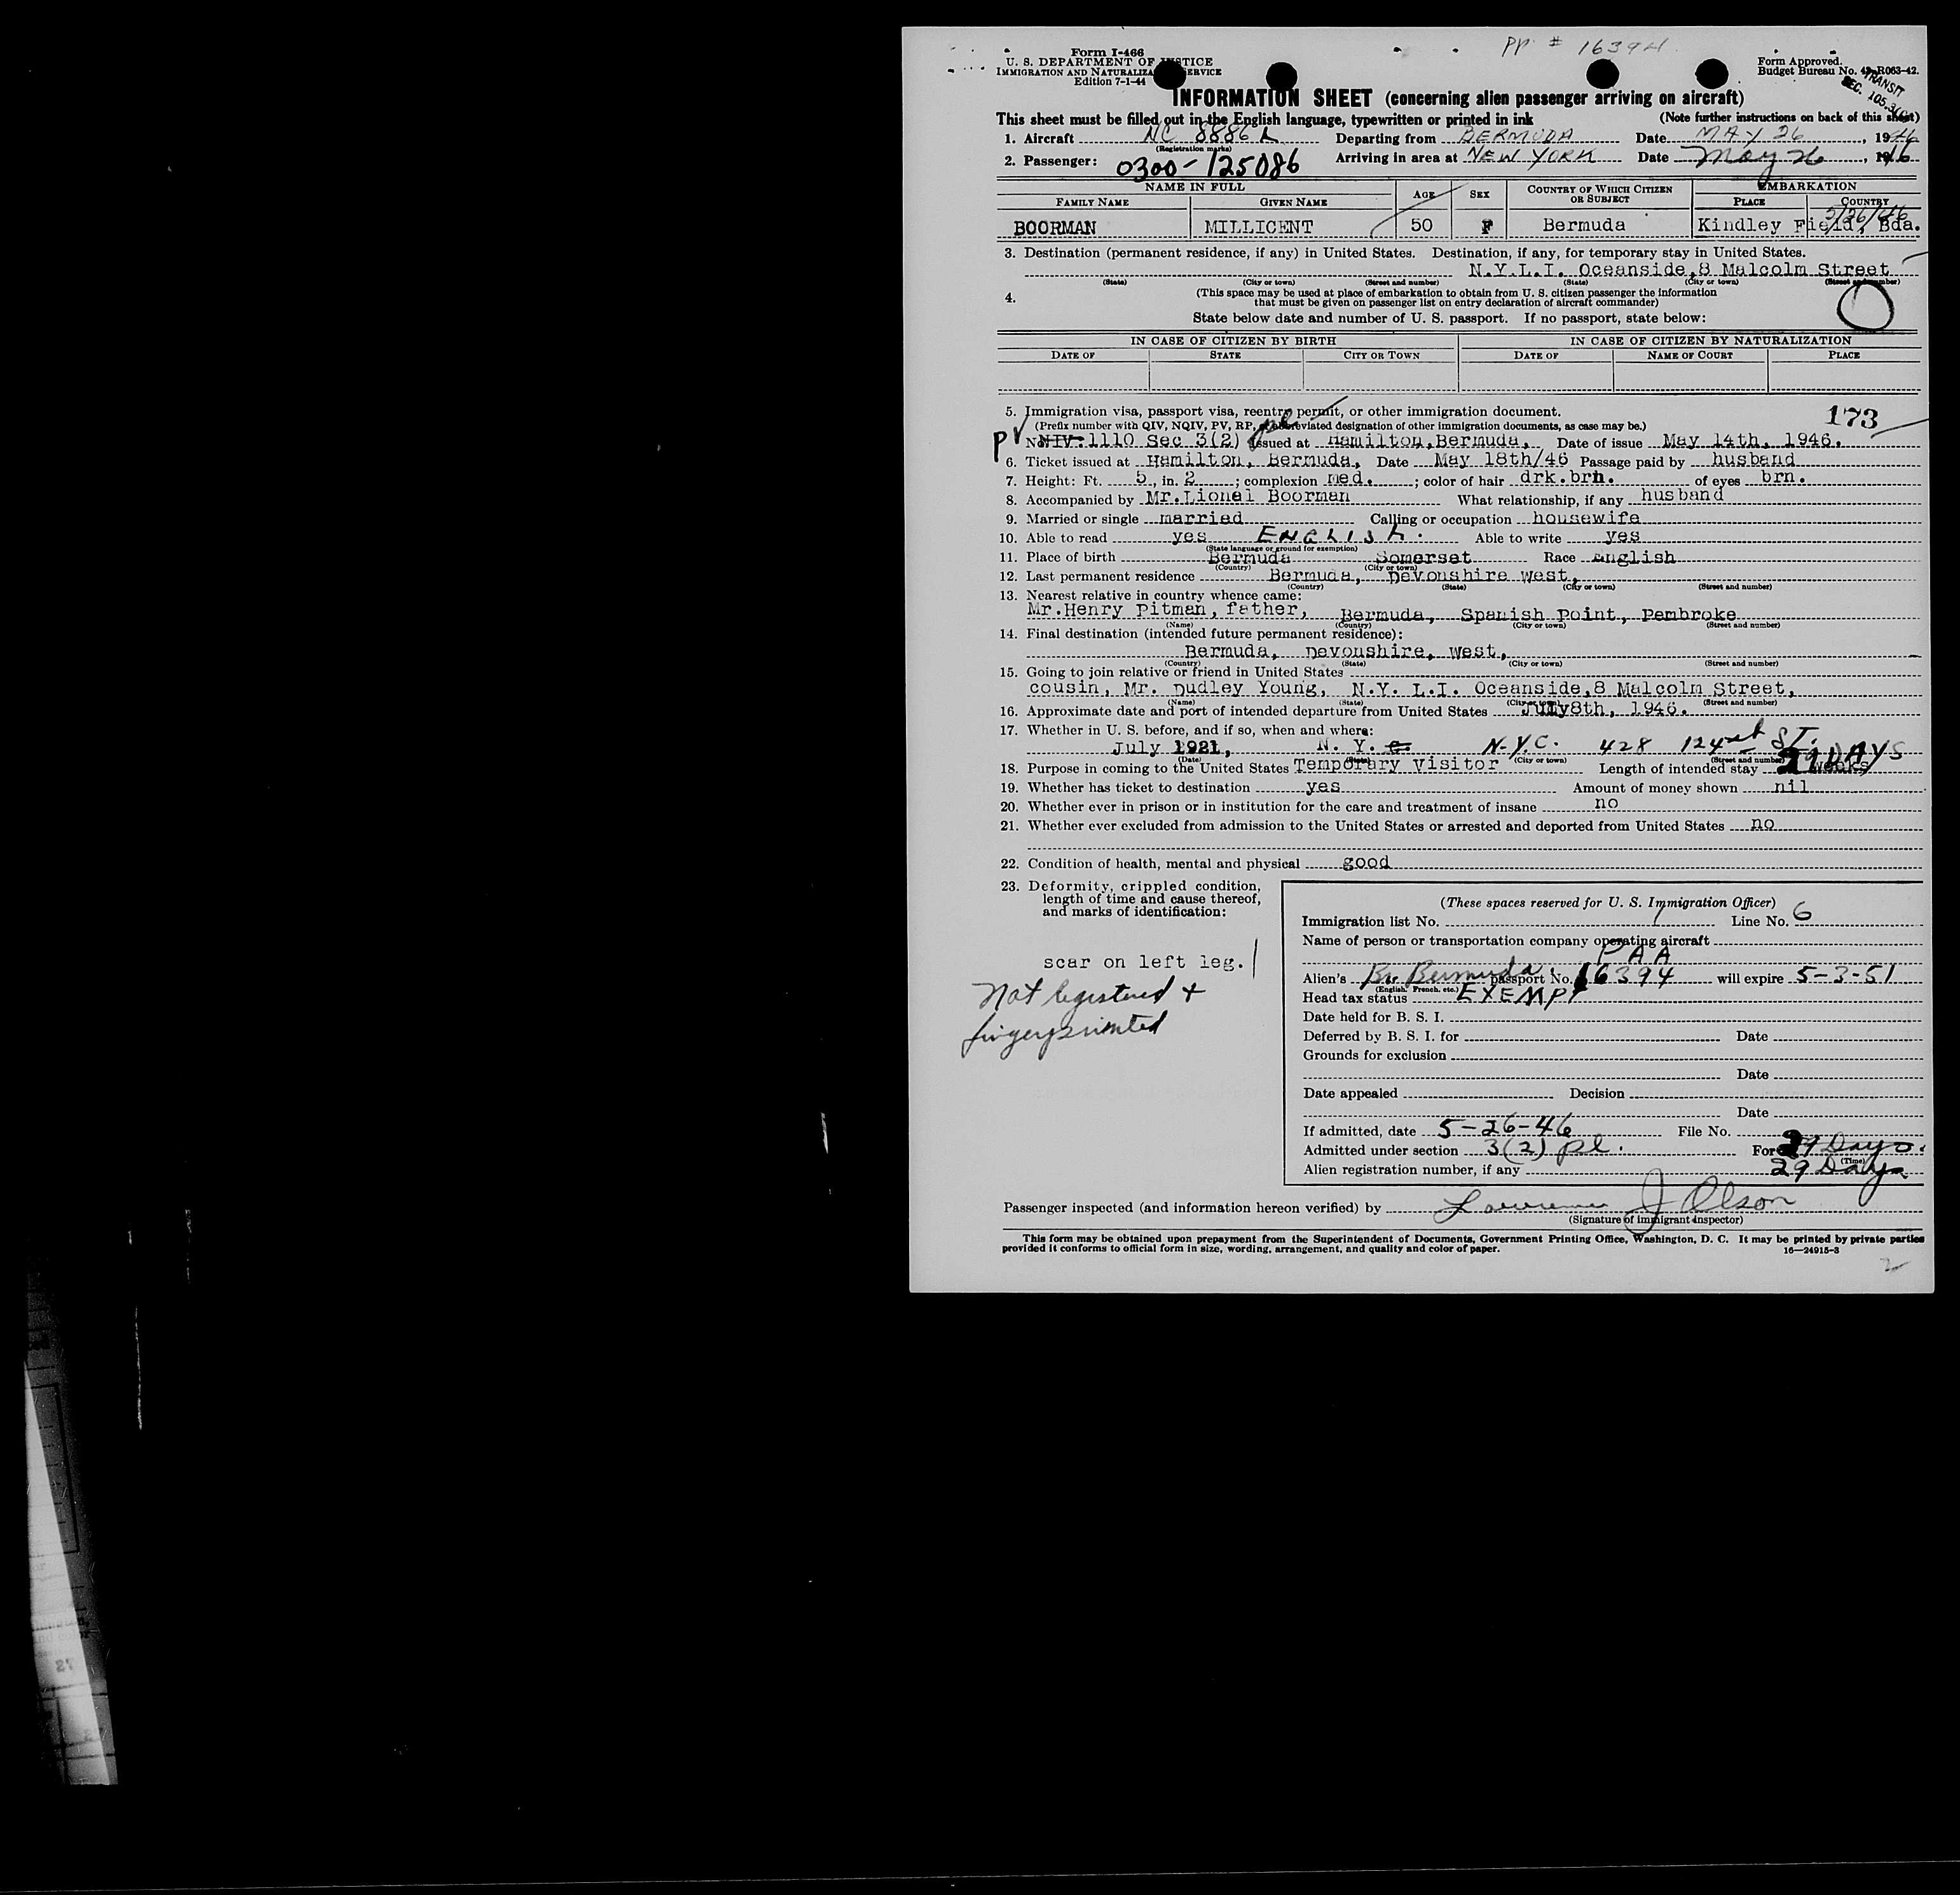 PP. # 16394
Form I-466
U. S. DEPARTMENT OF JUSTICE
IMMIGRATION AND NATURALIZATION SERVICE
Edition 7-1-44
Form Approved.
Budget Bureau No. 43-R063-42.
TRANSIT
SEC. 105.3
INFORMATION SHEET (concerning alien passenger arriving on aircraft)
This sheet must be filled out in the English language, typewritten or printed in ink (Note further instructions on back of this sheet)
1. Aircraft NC 8886 Departing from BERMUDA Date MAY 26, 1946
(Registration marks)
2. Passenger: 0300-125086 Arriving in area at NEW YORK Date May 26, 1946
NAME IN FULL AGE SEX COUNTRY OF WHICH CITIZEN OR SUBJECT EMBARKATION
FAMILY NAME GIVEN NAME PLACE COUNTRY
5/26/46
BOORMAN MILLICENT 50 F Bermuda Kindley Field, Bda.
3. Destination (permanent residence, if any) in United States. Destination, if any, for temporary stay in United States.
N.Y.L.I. Oceanside,8 Malcolm Street
(State) (City or town) (Street and number) (State) (City or town) (Street and number)
4. (This space may be used at place of embarkation to obtain from U. S. citizen passenger the information
that must be given on passenger list on entry declaration of aircraft commander)
State below date and number of U. S. passport. If no passport, state below:
IN CASE OF CITIZEN BY BIRTH IN CASE OF CITIZEN BY NATURALIZATION
DATE OF STATE CITY OR TOWN DATE OF NAME OF COURT PLACE
5. Immigration visa, passport visa, reentry permit, or other immigration document. 173
(Prefix number with QIV, NQIV, PV, RP, or abbreviated designation of other immigration documents, as case may be.)
PV No. NIV.1110 Sec 3(2) pl Issued at Hamilton,Bermuda, Date of issue May 14th, 1946.
6. Ticket issued at Hamilton, Bermuda, Date May 18th/46 Passage paid by husband
7. Height: Ft. 5, in. 2; complexion med.; color of hair drk.brn. of eyes brn.
8. Accompanied by Mr.Lionel Boorman What relationship, if any husband
9. Married or single married Calling or occupation housewife
10. Able to read yes ENGLISH. Able to write yes
(State language or ground for exemption)
11. Place of birth Bermuda Somerset Race English
(Country) (City or town)
12. Last permanent residence Bermuda, Devonshire West,
(Country) (State) (City or town) (Street and number)
13. Nearest relative in country whence came:
Mr.Henry Pitman, father, Bermuda, Spanish Point, Pembroke
(Name) (Country) (City or town) (Street and number)
14. Final destination (intended future permanent residence):
Bermuda, Devonshire, West,
(Country) (State) (City or town) (Street and number)
15. Going to join relative or friend in United States
cousin, Mr. Dudley Young, N.Y. L.I. Oceanside,8 Malcolm Street,
(Name) (State) (City or town) (Street and number)
16. Approximate date and port of intended departure from United States July8th, 1946.
17. Whether in U. S. before, and if so, when and where:
July 1921, N. Y. c. N.Y.C. 428 124st ST.
(Date) (State) (City or town) (Street and number)
18. Purpose in coming to the United States Temporary Visitor Length of intended stay weeks 29 DAYS
19. Whether has ticket to destination yes Amount of money shown nil
20. Whether ever in prison or in institution for the care and treatment of insane no
21. Whether ever excluded from admission to the United States or arrested and deported from United States no
22. Condition of health, mental and physical good
23. Deformity, crippled condition,
length of time and cause thereof,
and marks of identification:
scar on left leg.
Not Registered +
fingerprinted
(These spaces reserved for U. S. Immigration Officer)
Immigration list No. 1 Line No. 6
Name of person or transportation company operating aircraft
PAA
Alien's Br. Bermuda. passport No. 16394 will expire 5-3-51
(English, French, etc.)
Head tax status EXEMPT
Date held for B. S. I.
Deferred by B. S. I. for Date
Grounds for exclusion
Date
Date appealed Decision
Date
If admitted, date 5-26-46 File No.
Admitted under section 3(2) pl. For 29 Days.
(Time)
Alien registration number, if any 29 Days
Passenger inspected (and information hereon verified) by Lawrence J Olson
(Signature of immigrant inspector)
This form may be obtained upon prepayment from the Superintendent of Documents, Government Printing Office, Washington, D. C. It may be printed by private parties
provided it conforms to official form in size, wording, arrangement, and quality and color of paper. 16—24915-3
2